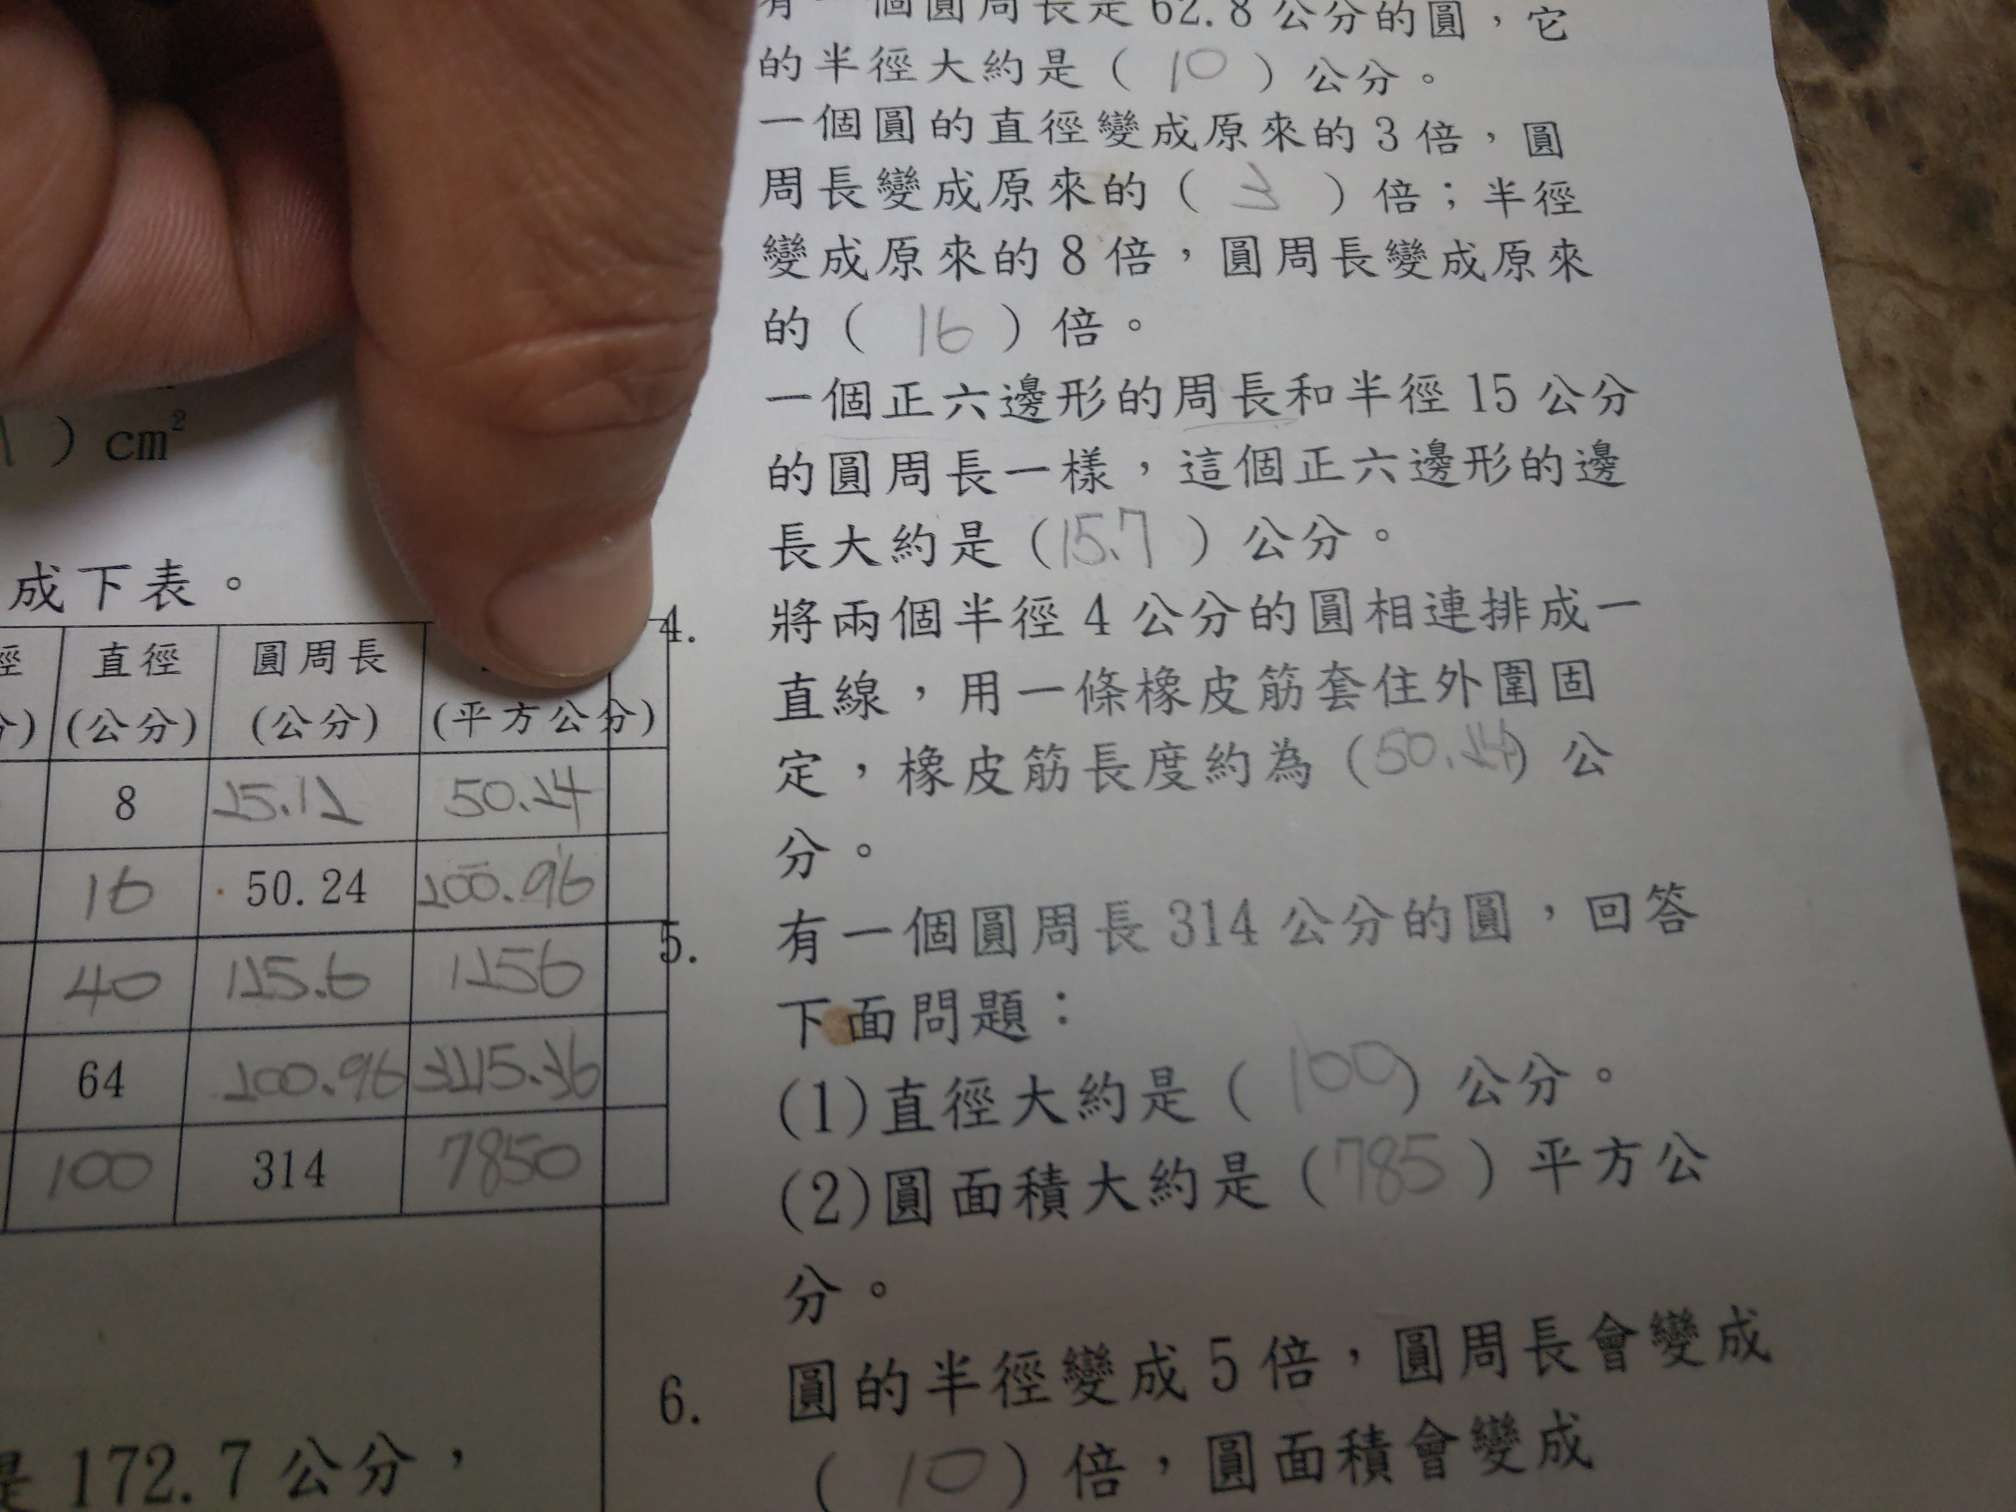 ）cm²
成下表。
直徑 圓周長
(公分) (公分) (平方公分)
8 25.12 50.24
16 50.24 200.96
40 125.6 1256
64 200.96 3215.36
100 314 7850
是 172.7 公分，
有一個圓周長是 62.8 公分的圓，它
的半徑大約是（ 10 ）公分。
一個圓的直徑變成原來的 3 倍，圓
周長變成原來的（ 3 ）倍；半徑
變成原來的 8 倍，圓周長變成原來
的（ 16 ）倍。
一個正六邊形的周長和半徑 15 公分
的圓周長一樣，這個正六邊形的邊
長大約是（15.7 ）公分。
4. 將兩個半徑 4 公分的圓相連排成一
直線，用一條橡皮筋套住外圍固
定，橡皮筋長度約為（50.24）公
分。
5. 有一個圓周長 314 公分的圓，回答
下面問題：
(1)直徑大約是（ 100）公分。
(2)圓面積大約是（785 ）平方公
分。
6. 圓的半徑變成 5 倍，圓周長會變成
（ 10 ）倍，圓面積會變成